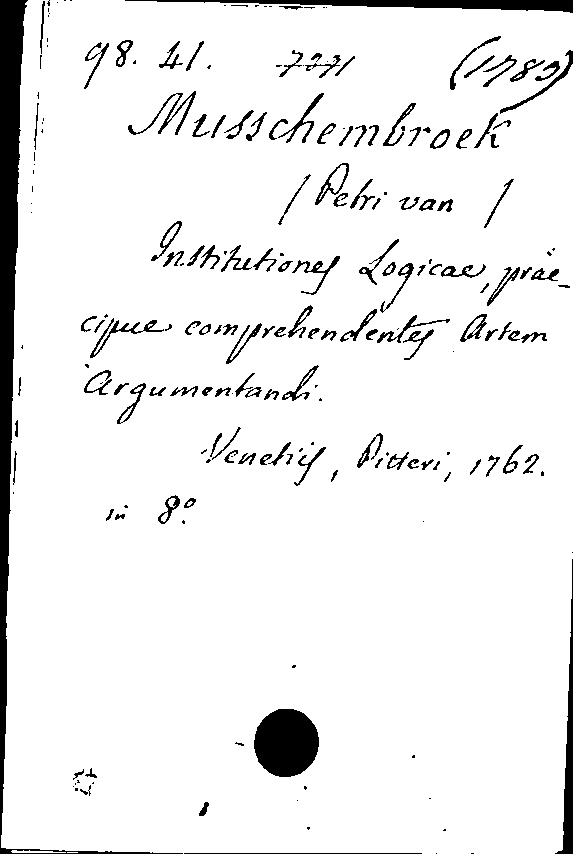 98. 41. 7271 (1783)
Musschembroek
/ Petri van /
Institutiones Logicae, prae-
cipue comprehendentes Artem
Argumentandi.
Venetiis, Pitteri, 1762.
in 8º.